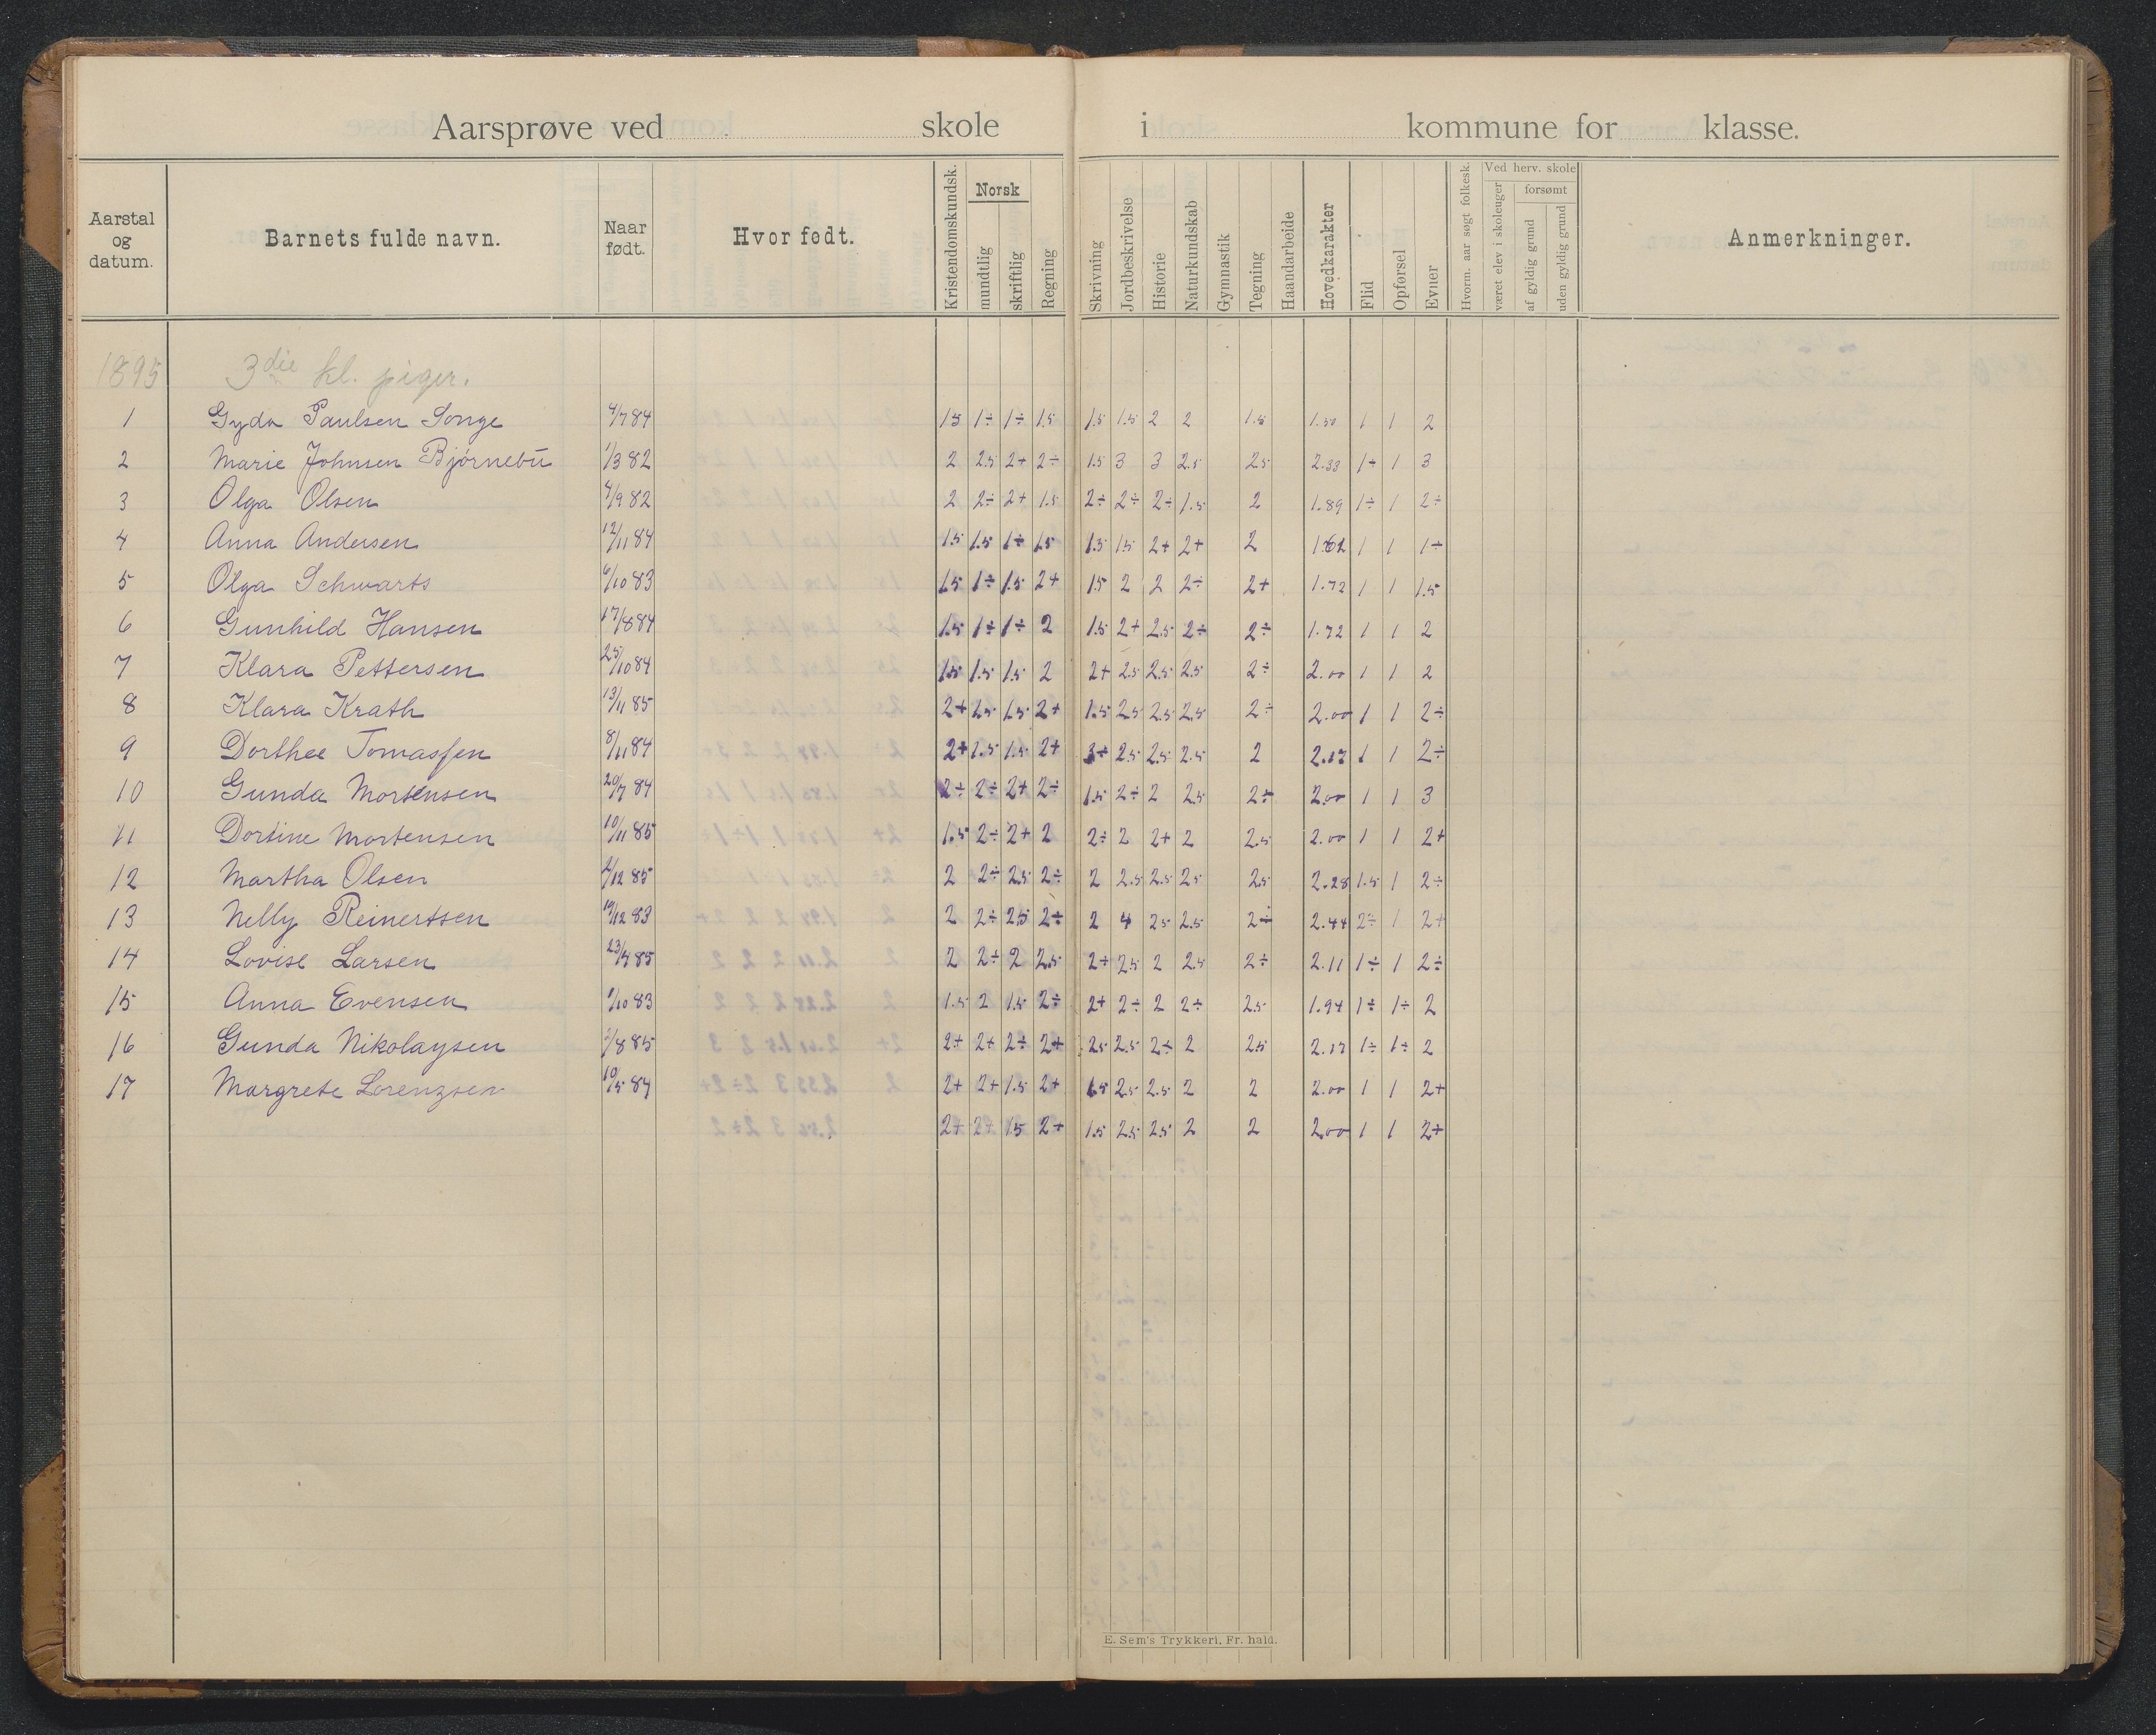 Aarsprøve ved skole i kommune for klasse.
Aarstal og datum. Barnets fulde navn. Naar født. Hvor født. Kristendomskundsk. Norsk mundtlig skriftlig Regning Skrivning Jordbeskrivelse Historie Naturkundskab Gymnastik Tegning Haandarbeide Hovedkarakter Flid Opførsel Evner Hvorn. aar søgt folkesk. Ved herv. skole været elev i skoleuger forsømt af gyldig grund uden gyldig grund Anmerkninger.
1895 3die kl. piger.
1 Gyda Paulsen Songe 4/7 84 1.5 1÷ 1÷ 1.5 1.5 1.5 2 2 1.5 1.50 1 1 2
2 Marie Johnsen Bjørnebu 1/3 82 2 2.5 2+ 2÷ 1.5 3 3 2.5 2.5 2.33 1÷ 1 3
3 Olga Olsen 4/9 82 2 2÷ 2+ 1.5 2÷ 2÷ 2÷ 1.5 2 1.89 1÷ 1 2÷
4 Anna Andersen 12/11 84 1.5 1.5 1÷ 1.5 1.5 1.5 2+ 2+ 2 1.62 1 1 1÷
5 Olga Schwarts 6/10 83 1.5 1÷ 1.5 2+ 1.5 2 2 2÷ 2+ 1.72 1 1 1.5
6 Gunhild Hansen 17/8 84 1.5 1÷ 1÷ 2 1.5 2+ 2.5 2÷ 2÷ 1.72 1 1 2
7 Klara Pettersen 25/10 84 1.5 1.5 1.5 2 2+ 2.5 2.5 2.5 2÷ 2.00 1 1 2
8 Klara Krath 13/11 85 2+ 2.5 1.5 2+ 1.5 2.5 2.5 2.5 2÷ 2.00 1 1 2÷
9 Dorthee Tomassen 8/11 84 2+ 2.5 1.5 2+ 3+ 2.5 2.5 2.5 2 2.17 1 1 2÷
10 Gunda Mortensen 20/7 84 2÷ 2÷ 2+ 2÷ 1.5 2÷ 2 2.5 2÷ 2.00 1 1 3
11 Dortine Mortensen 10/11 85 1.5 2÷ 2+ 2 2÷ 2 2+ 2 2.5 2.00 1 1 2+
12 Martha Olsen /12 85 2 2÷ 2.5 2÷ 2 2.5 2.5 2.5 2.5 2.28 1.5 1 2÷
13 Nelly Reinertsen 19/12 83 2 2÷ 2.5 2÷ 2 4 2.5 2.5 2÷ 2.44 2÷ 1 2+
14 Lovise Larsen 23/7 85 2 2÷ 2 2.5 2+ 2.5 2 2.5 2÷ 2.11 1÷ 1 2÷
15 Anna Evensen 1/10 83 1.5 2 1.5 2÷ 2+ 2÷ 2 2÷ 2.5 1.94 1÷ 1÷ 2
16 Gunda Nikolaysen /8 85 2+ 2+ 2÷ 2+ 2.5 2.5 2÷ 2 2.5 2.17 1÷ 1÷ 2
17 Margrete Lorenzsen 10/5 84 2+ 2+ 1.5 2+ 1.5 2.5 2.5 2 2 2.00 1 1 2+
2+ 2+ 1.5 2+ 1.5 2.5 2.5 2 2 2.00 1 1 2+
E. Sem's Trykkeri, Fr. hald.